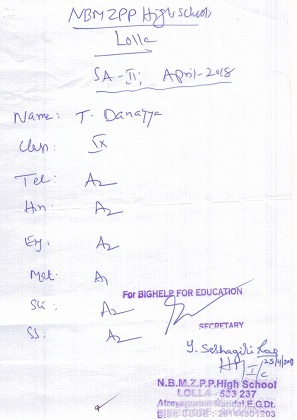 NBMZPP High School
Lolla
SA-II, April-2018
Name: T. Danayya
Class: IX
Tel: A2
Hin A2
Eng: A2
Mat: A1
Sci: A2
SS: A2
For BIGHELP FOR EDUCATION
SECRETARY
Y. Seshagiri Rao
HM I/C
N.B.M.Z.P.P.High School
LOLLA - 533 237
Atreyapuram Mandal,E.G.Dt.